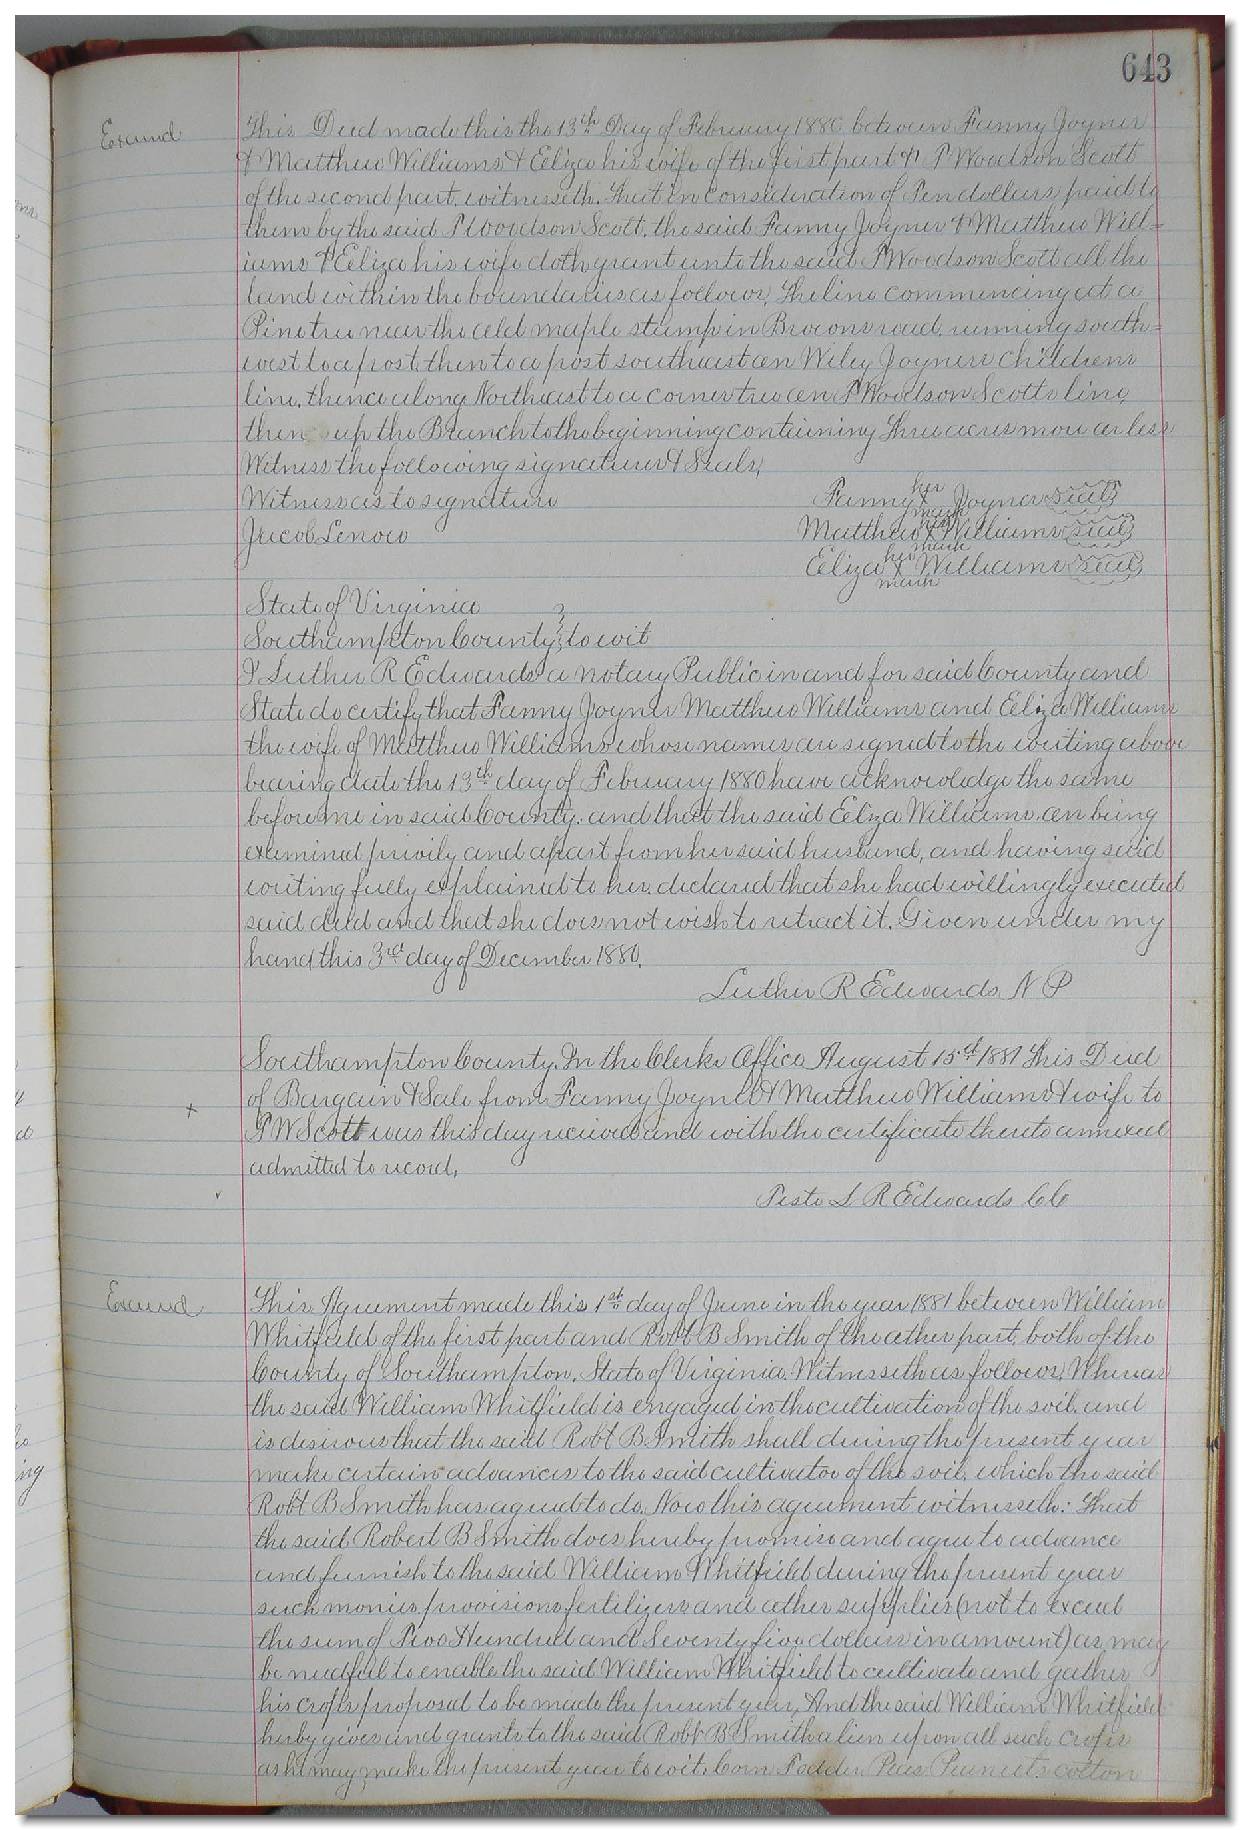 643
Examd
This Deed made this the 13th Day of February 1880 between Fanny Joyner
& Matthew Williams & Eeliza his wife of the first part & P Woodson Scott
of the second part. witnesseth. That in consideration of Ten dollars paid to
them by the said P Woodson Scott, the said Fanny Joyner & Matthew Will=
iams & Eeliza his wife doth grant unto the said P Woodson Scott all the
land within the boundaries as follows, The line commencing at a
Pine tree near the old maple stump in Browns road. running south=
west to a post, then to a post southwest on Wiley Joyners Childrens
line, thence along Northeast to a corner tree on P Woodson Scotts line,
then up the Branch to the beginning containing Three acres more or less
Witness the following signatures & Seals,
Witness as to signature
Jacob Lenow
her
Fanny X Joyner seal
mark
his
Matthew X Williams seal
mark
her
Eeliza X Williams seal
mark
State of Virginia
Southampton County, to wit
I Luther R Edwards a notary Public in and for said County and
State do certify that Fanny Joyner Matthew Williams and Eeliza Williams
the wife of Matthew Williams whose names are signed to the writing above
bearing date the 13th day of February 1880 have acknowledge the same
before me in said County. and that the said Eeliza Williams on being
examined privily and apart from her said husband, and having said
writing fully explained to her, declared that she had willingly executed
said deed and that she does not wish to retract it. Given under my
hand this 3rd day of December 1880.
Luther R Edwards N P
Southampton County. In the Clerks Office August 15th 1881 This Deed
of Bargain & Sale from Fanny Joyner & Matthew Williams & wife to
P W Scott was this day received and with the certificate thereto annexed
admitted to record,
Teste L R Edwards CC
Examd
This Agreement made this 1st day of June in the year 1881 between William
Whitfield of the first part and Robt B Smith of the other part, both of the
County of Southampton, State of Virginia. Witnesseth as follows, Whereas
the said William Whitfield is engaged in the cultivation of the soil, and
is desirous that the said Robt B Smith shall during the present year
make certain advances to the said cultivator of the soil, which the said
Robt B Smith has agreed to do. Now this agreement witnesseth: That
the said Robert B Smith does hereby promise and agree to advance
and furnish to the said William Whitfield during the present year
such monies, provisions, fertilizers and other supplies (not to exceed
the sum of Two Hundred and Seventy five dollars in amount) as may
be needful to enable the said William Whitfield to cultivate and gather
his crops proposed to be made the present year, And the said William Whitfield
hereby gives and grants to the said Robt B Smith a lien upon all such crops
as he may make the present year to wit. Corn Fodder Peas Peanuts cotton